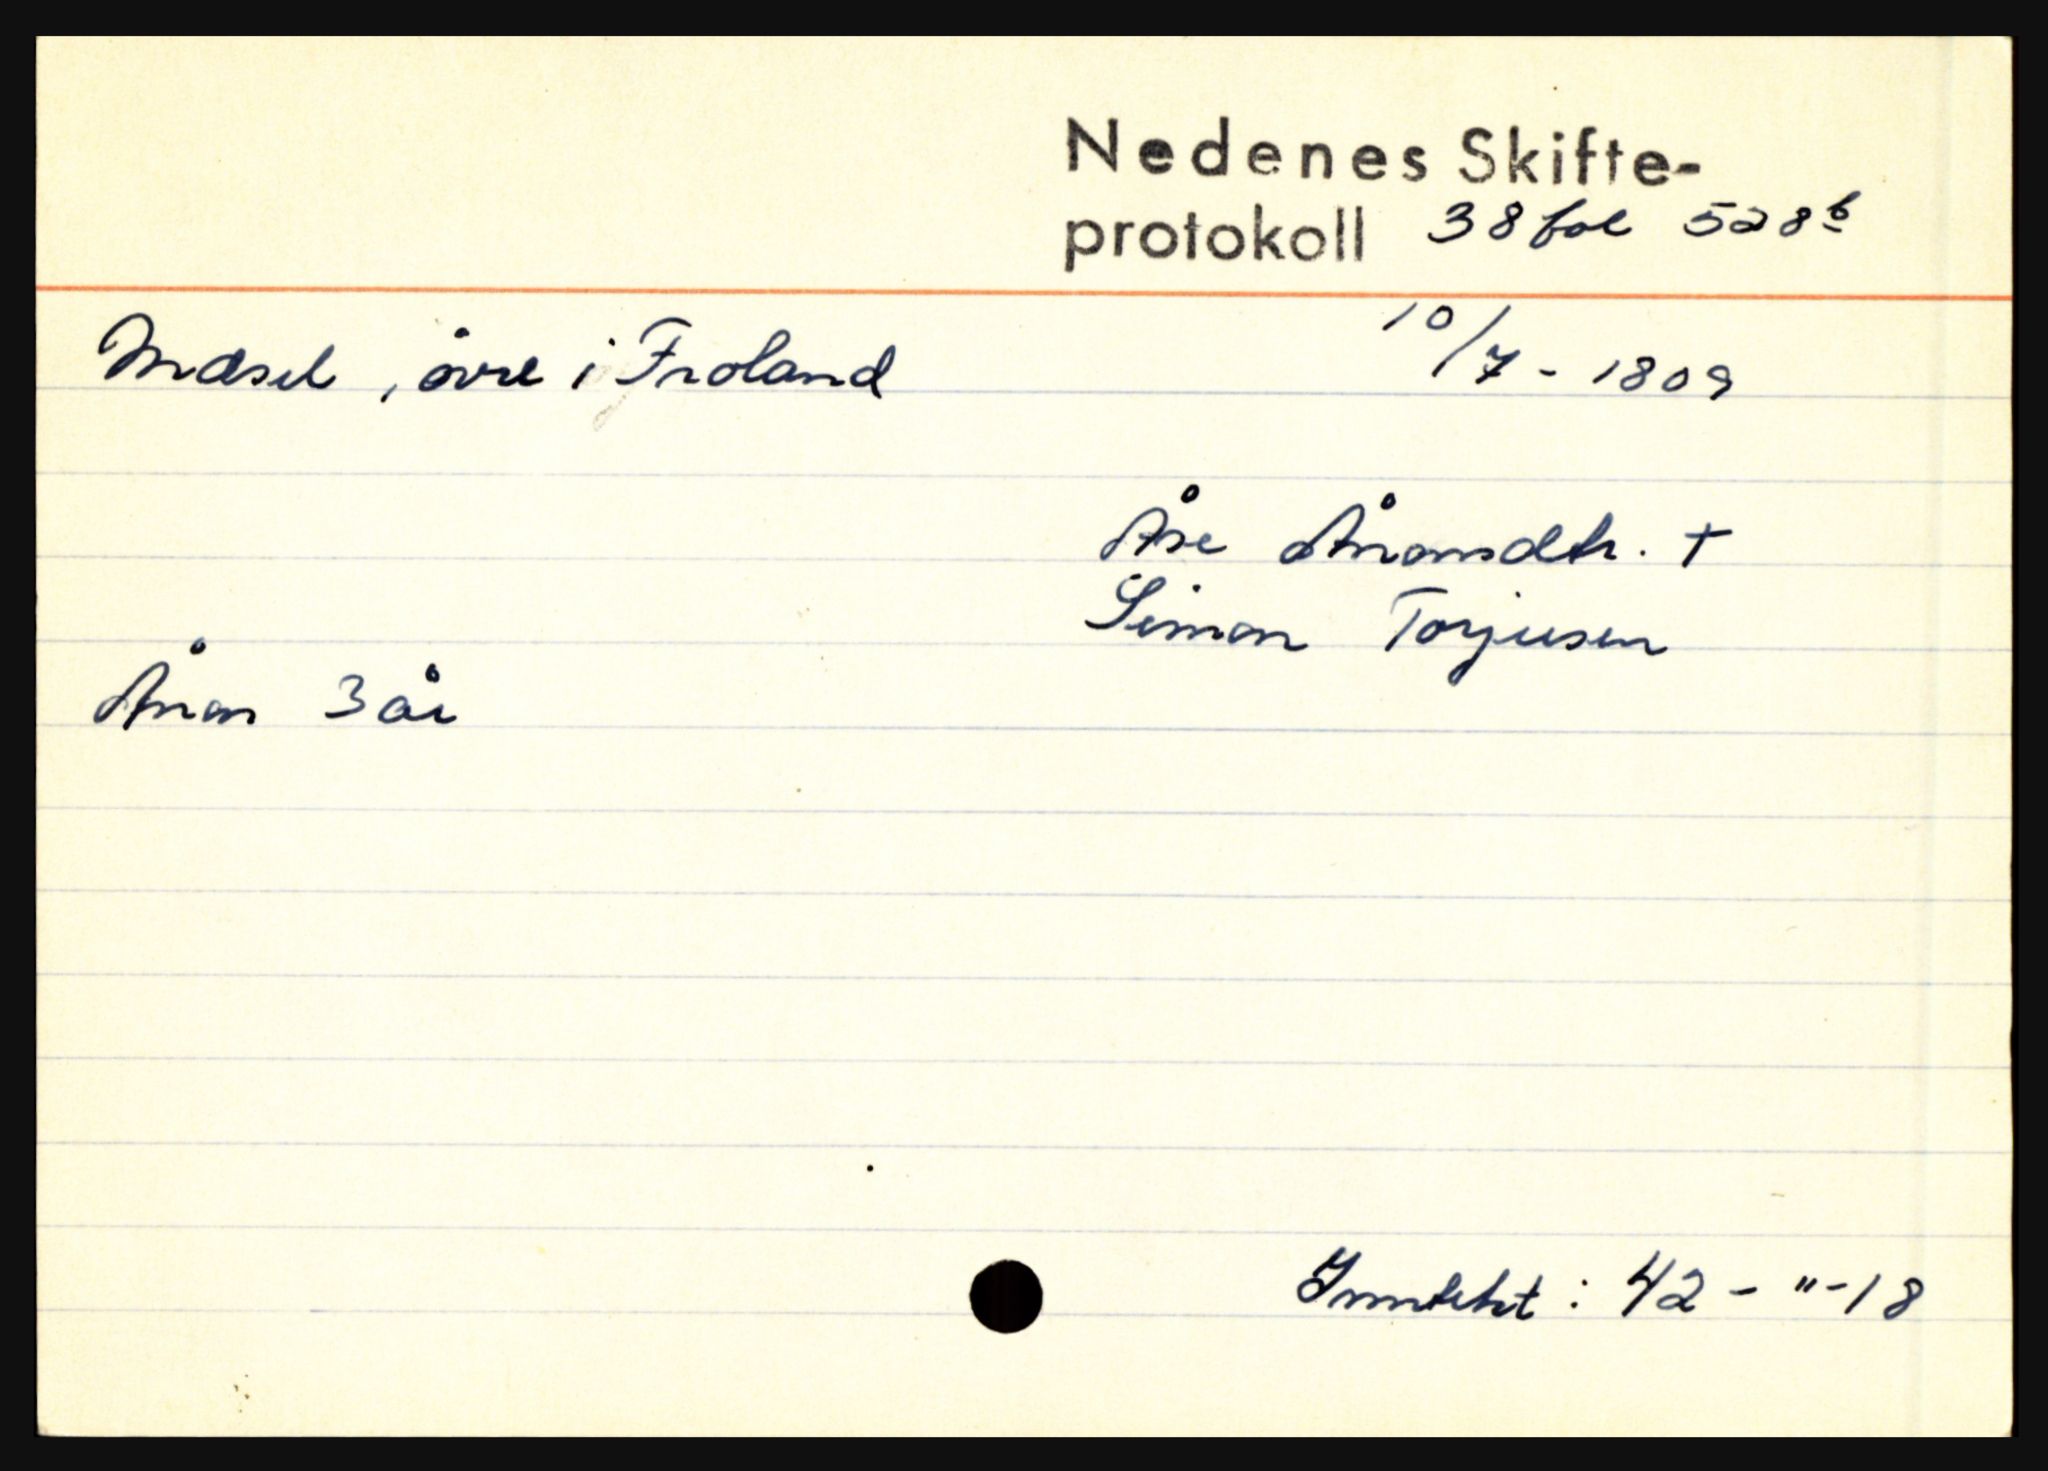 Nedenes Skifte-
protokoll 38 fol 528b
Mdsel, øvre i Froland 10/7 - 1809
Åse Ånonsdtr. +
Simon Torjusen
Ånon 3 år
Inntekt: 42 - " - 18